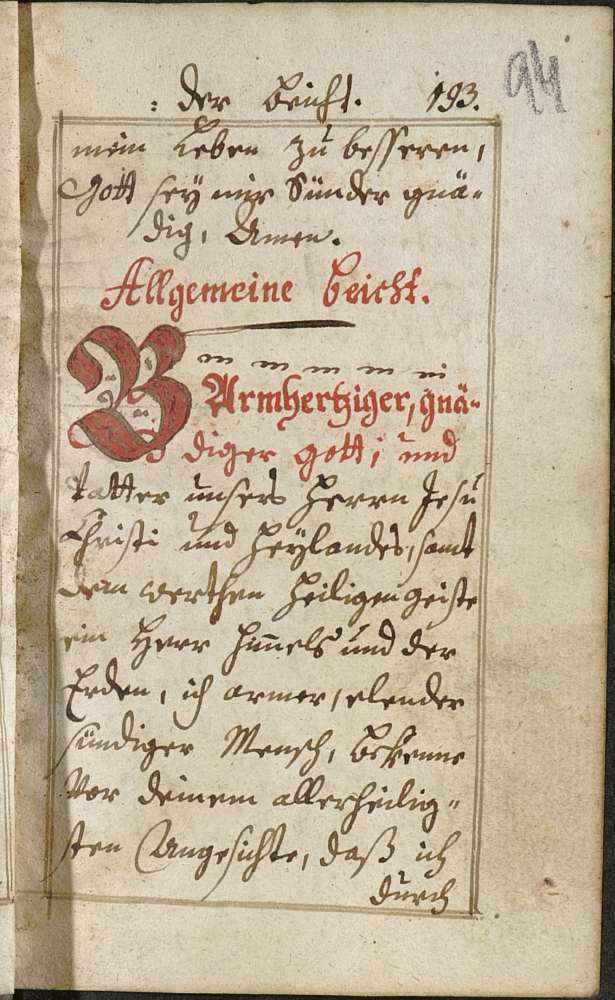 : der Beicht. 193.
94
mein Leben zu besseren,
Gott seÿ mir Sünder gnä-
dig, Amen.
Allgemeine Beicht.
BArmhertziger, gnä-
diger gott, und
Vatter unsers Herrn Jesu
Christi und Heÿlandes, samt
dem werthen Heiligen geiste
ein Herr Him̄els und der
Erden, ich armer, elender
sündiger Mensch, bekenne
Vor deinem allerheilig-
sten Angesichte, daß ich
durch